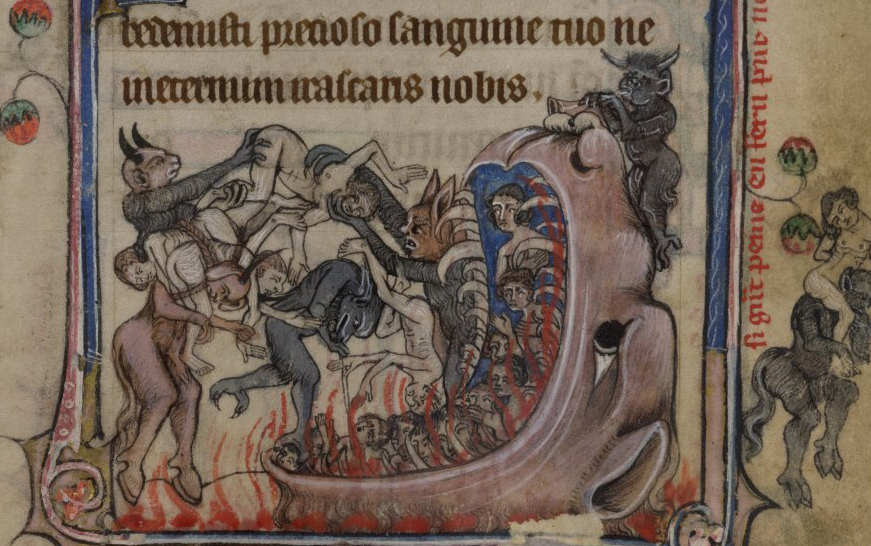 redemisti precioso sanguine tuo ne
ineternum irascaris nobis.
si gñt peine en